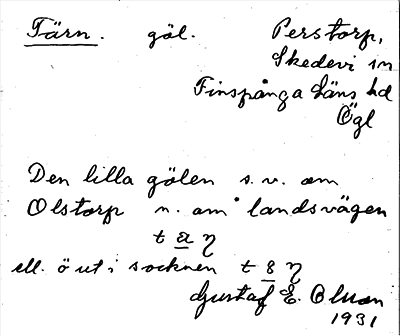 Tärn. göl. Perstorp,
Skedevi sn
Finspånga läns hd
Ögl
Den lilla gölen s.v. om
Olstorp n. om landsvägen
t a η
ell. ö ut i socknen t 8 η
Gustaf E. Olson
1931